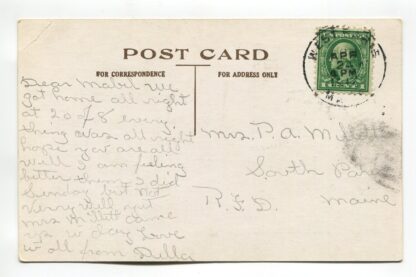 POST CARD
FOR CORRESPONDENCE
FOR ADDRESS ONLY
Dear Mabel We
got home all right
at 20 of 8 every
thing was all right
hope you are all
well I am feeling
better then I did
Sunday but not
verry well yet
Mrs Millett came
up to day Love
to all from Della
Mrs. P. A. Millett
South Paris
R.F.D. Maine
APR
PM